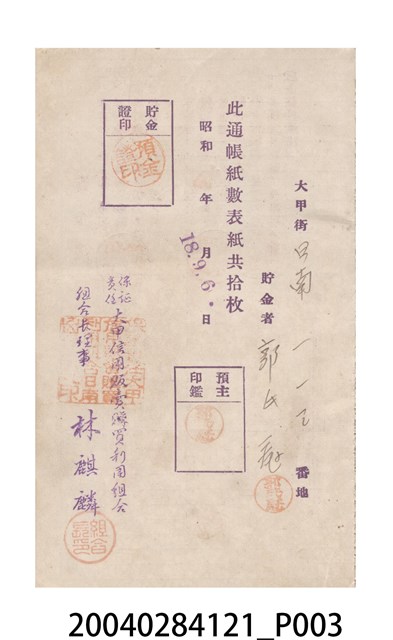 大甲街 日南 一一七 番地
貯金者 郭氏
此通帳紙數表紙共拾枚
昭和 年 月 日
18.9.6
貯金證印
預金證印
預主印鑑
保証責任 大甲信用販賣購買利用組合
組合長理事 林麒麟
20040284121_P003